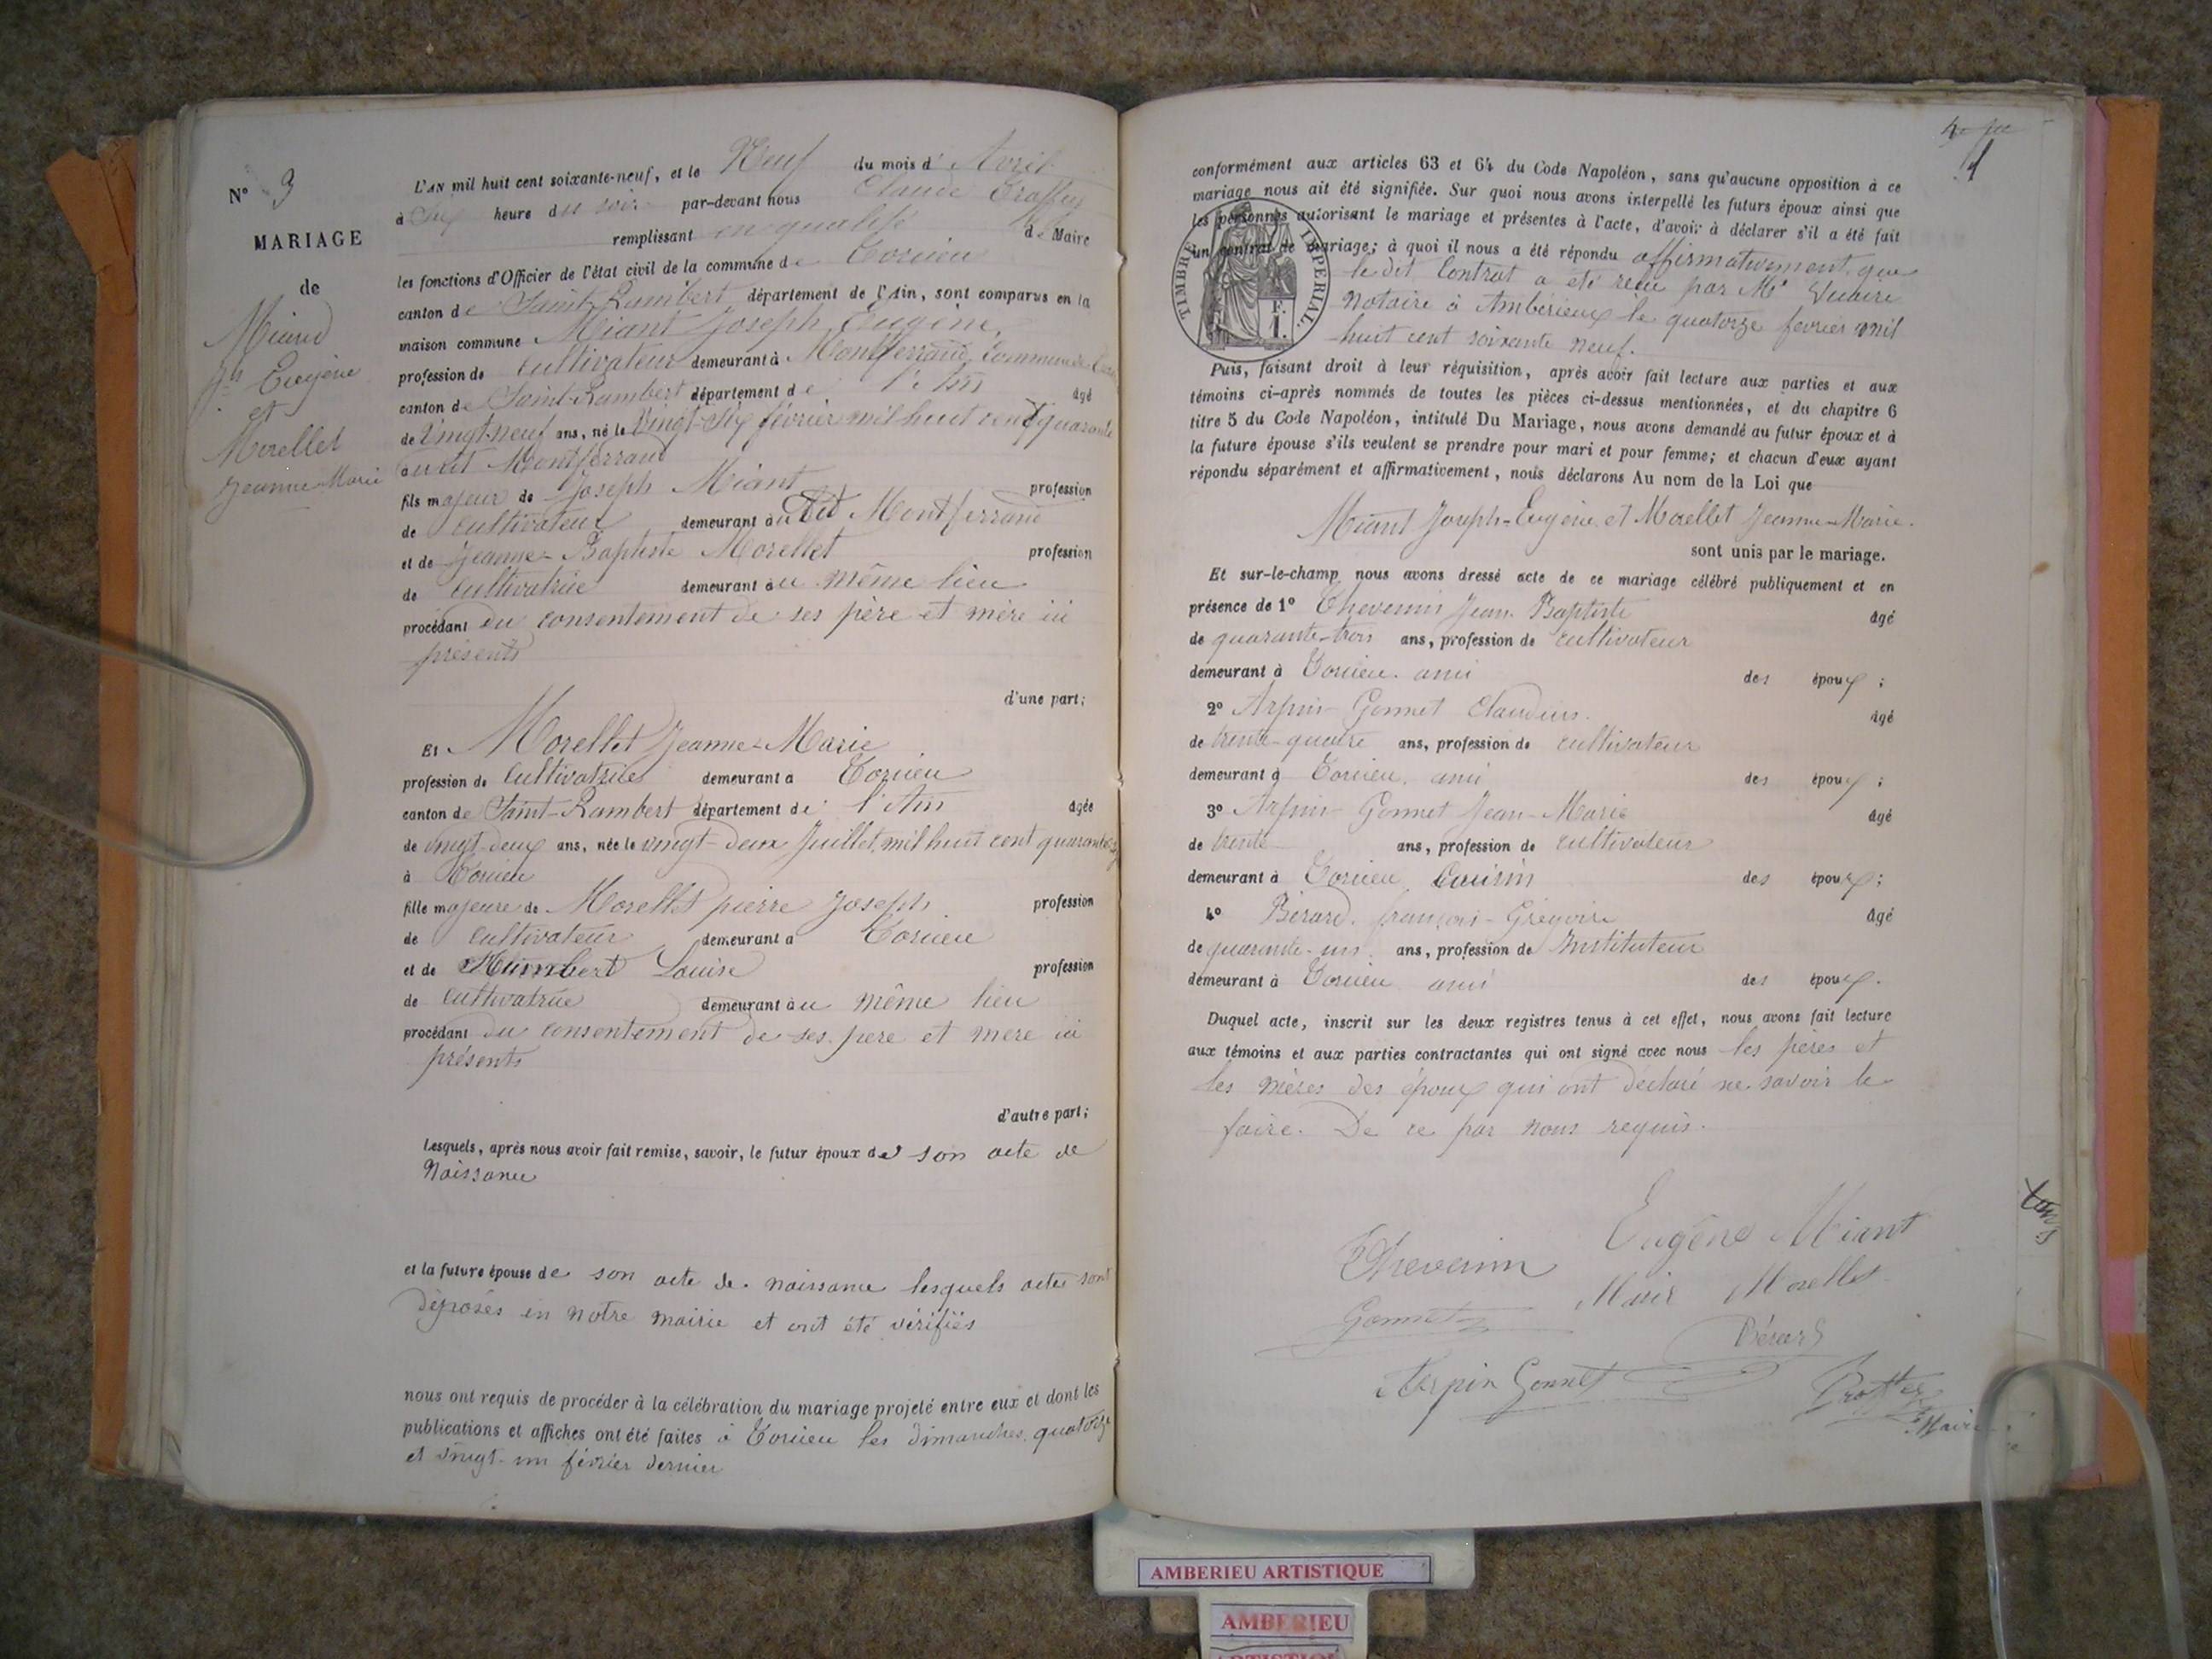 N° 3
MARIAGE
de
Miand
Jh Eugène
et
Morellet
Jeanne-Marie
L'AN mil huit cent soixante-neuf, et le Neuf du mois d'Avril
à Six heure du soir par-devant nous Claude Troffey
remplissant en qualité de Maire
les fonctions d'Officier de l'état civil de la commune de Torcieu
canton de Saint-Rambert département de l'Ain, sont comparus en la
maison commune Miant Joseph Eugène,
profession de cultivateur demeurant à Montferrand, Commune de
canton de Saint-Rambert département de l'Ain âgé
de Vingt-neuf ans, né le Vingt-Six février mil huit cent quarante
au dit Montferrand
fils majeur de Joseph Miant profession
de cultivateur demeurant au dit Montferrand
et de Jeanne-Baptiste Morellet profession
de cultivatrice demeurant au même lieu
procédant du consentement de ses père et mère ici
présents
d'une part;
Et Morellet Jeanne-Marie
profession de Cultivatrice demeurant à Torcieu
canton de Saint-Rambert département de l'Ain âgée
de vingt-deux ans, née le vingt-deux Juillet mil huit cent quarante
à Torcieu
fille majeure de Morellet pierre Joseph profession
de cultivateur demeurant à Torcieu
et de Humbert Louise profession
de cultivatrice demeurant au même lieu
procédant du consentement de ses père et mère ici
présents
d'autre part;
Lesquels, après nous avoir fait remise, savoir, le futur époux de son acte de
Naissance
et la future épouse de son acte de naissance lesquels actes sont
déposés en notre mairie et ont été vérifiés
nous ont requis de procéder à la célébration du mariage projeté entre eux et dont les
publications et affiches ont été faites à Torcieu les dimanches quatorze
et vingt-un février dernier
1
conformément aux articles 63 et 64 du Code Napoléon, sans qu'aucune opposition à ce
mariage nous ait été signifiée. Sur quoi nous avons interpellé les futurs époux ainsi que
les personnes autorisant le mariage et présentes à l'acte, d'avoir à déclarer s'il a été fait
un contrat de mariage; à quoi il nous a été répondu affirmativement, que
le dit Contrat a été reçu par Me
notaire à Ambérieux le quatorze février mil
huit cent soixante neuf.
TIMBRE IMPERIAL.
1 F.
Puis, faisant droit à leur réquisition, après avoir fait lecture aux parties et aux
témoins ci-après nommés de toutes les pièces ci-dessus mentionnées, et du chapitre 6
titre 5 du Code Napoléon, intitulé Du Mariage, nous avons demandé au futur époux et à
la future épouse s'ils veulent se prendre pour mari et pour femme; et chacun d'eux ayant
répondu séparément et affirmativement, nous déclarons Au nom de la Loi que
Miant Joseph-Eugène et Morellet Jeanne-Marie.
sont unis par le mariage.
Et sur-le-champ nous avons dressé acte de ce mariage célébré publiquement et en
présence de 1° Thevenin Jean Baptiste âgé
de quarante-trois ans, profession de cultivateur
demeurant à Torcieu. ami des époux;
2° Arpin-Gonnet Claudius. âgé
de trente-quatre ans, profession de cultivateur
demeurant à Torcieu. ami des époux;
3° Arpin-Gonnet Jean-Marie âgé
de trente ans, profession de cultivateur
demeurant à Torcieu Cousin des époux;
4° Bérard. françois-Grégoire âgé
de quarante-un ans, profession de Instituteur
demeurant à Torcieu ami des époux.
Duquel acte, inscrit sur les deux registres tenus à cet effet, nous avons fait lecture
aux témoins et aux parties contractantes qui ont signé avec nous les pères et
les mères des époux qui ont déclaré ne savoir le
faire. De ce par nous requis.
Eugène Miant
Thevenin
Marie Morellet
Gonnet
Bérard
Arpin Gonnet
Troffey
Maire
AMBERIEU ARTISTIQUE
AMBERIEU
ARTISTIQUE